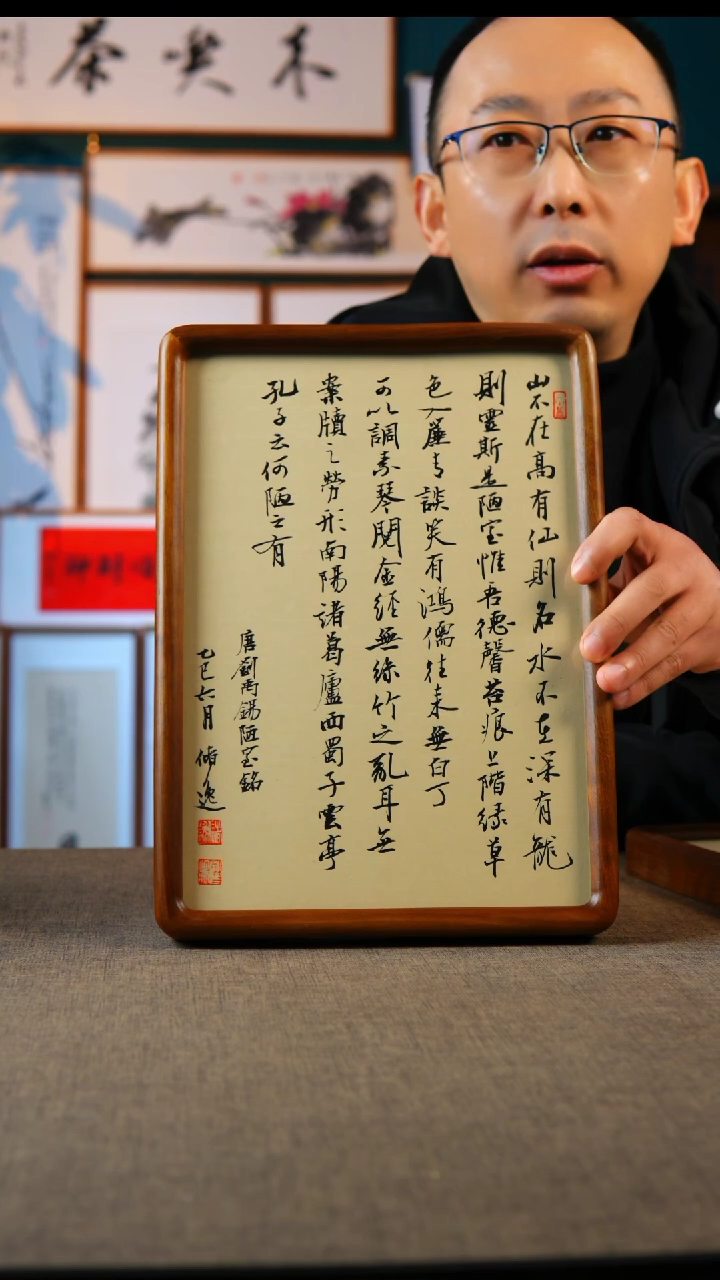 山不在高有仙則名水不在深有龍
則靈斯是陋室惟吾德馨苔痕上階綠草
色入簾青談笑有鴻儒往來無白丁
可以調素琴閱金經無絲竹之亂耳無
案牘之勞形南陽諸葛廬西蜀子雲亭
孔子云何陋之有
唐劉禹錫陋室銘
乙巳六月 脩逸
喫茶